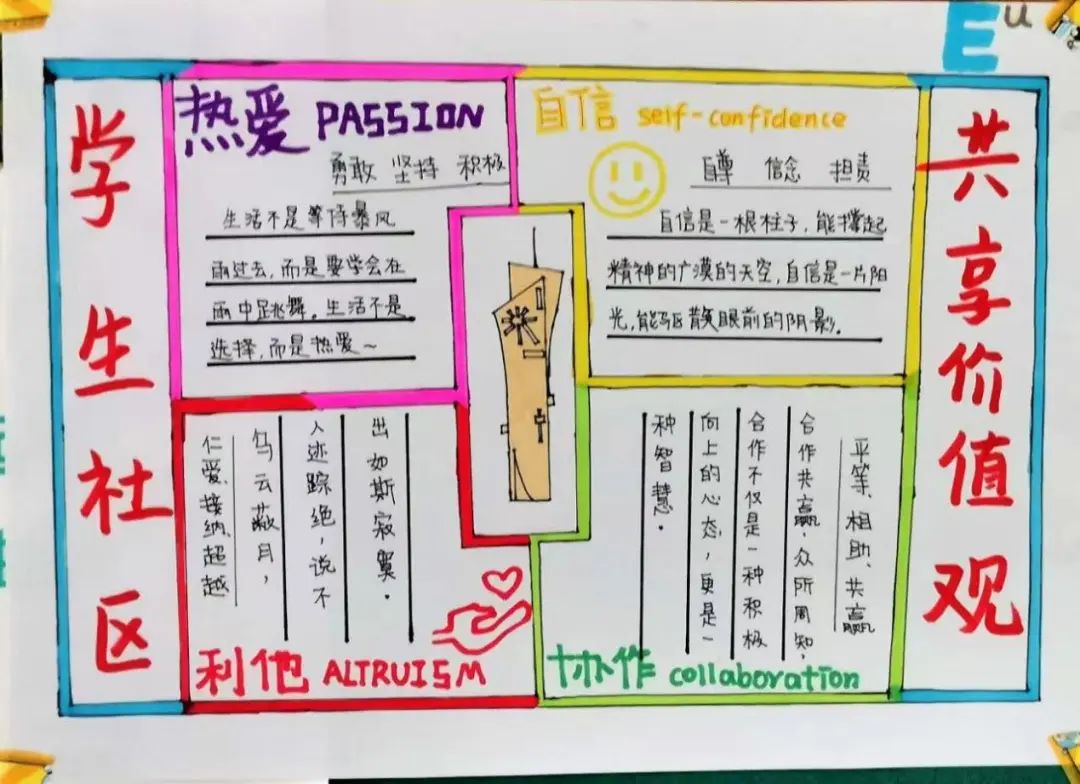 Eu
学生社区
热爱 PASSION
勇敢 坚持 积极
生活不是等待暴风
雨过去,而是要学会在
雨中跳舞。生活不是
选择,而是热爱~
自信 self-confidence
自尊 信念 担责
自信是一根柱子,能撑起
精神的广漠的天空,自信是一片阳
光,能驱散眼前的阴影。
仁爱、接纳、超越
乌云蔽月,
人迹踪绝,说不
出如斯寂寞.
利他 ALTRUISM
平等、相助、共赢
合作共赢,众所周知,
合作不仅是一种积极
向上的心态,更是一
种智慧.
协作 collaboration
共享价值观